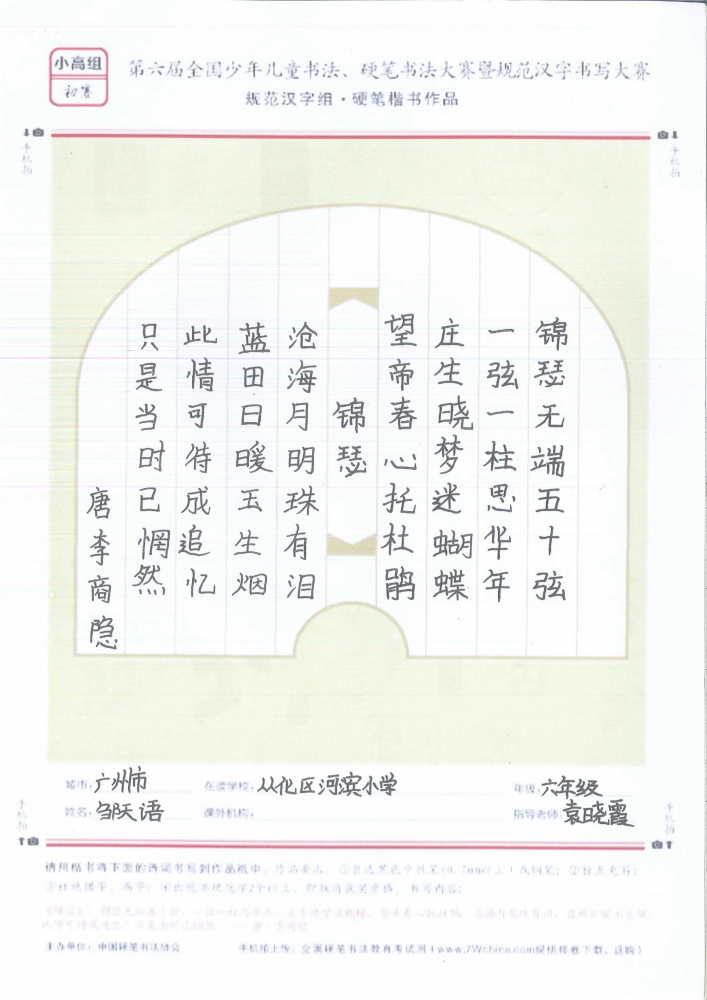 小高组
初赛
第六届全国少年儿童书法、硬笔书法大赛暨规范汉字书写大赛
规范汉字组·硬笔楷书作品
手机拍
手机拍
锦瑟无端五十弦
一弦一柱思华年
庄生晓梦迷蝴蝶
望帝春心托杜鹃
锦瑟
沧海月明珠有泪
蓝田日暖玉生烟
此情可待成追忆
只是当时已惘然
唐李商隐
城市:广州市
在读学校:从化区河滨小学
年级:六年级
姓名:邹天语
课外机构:
指导老师:袁晓霞
手机拍
手机拍
请用楷书将下面的诗词书写到作品纸中。作品要求:①自选黑色中性笔(0.7mm以上)或钢笔;②标点免写;
③杜绝错字、漏字;④出现不规范字2个以上,即取消获奖资格。书写内容:
主办单位:中国硬笔书法协会
手机拍上传:全国硬笔书法教育考试网(www.7Wchina.com提供样卷下载、选购)